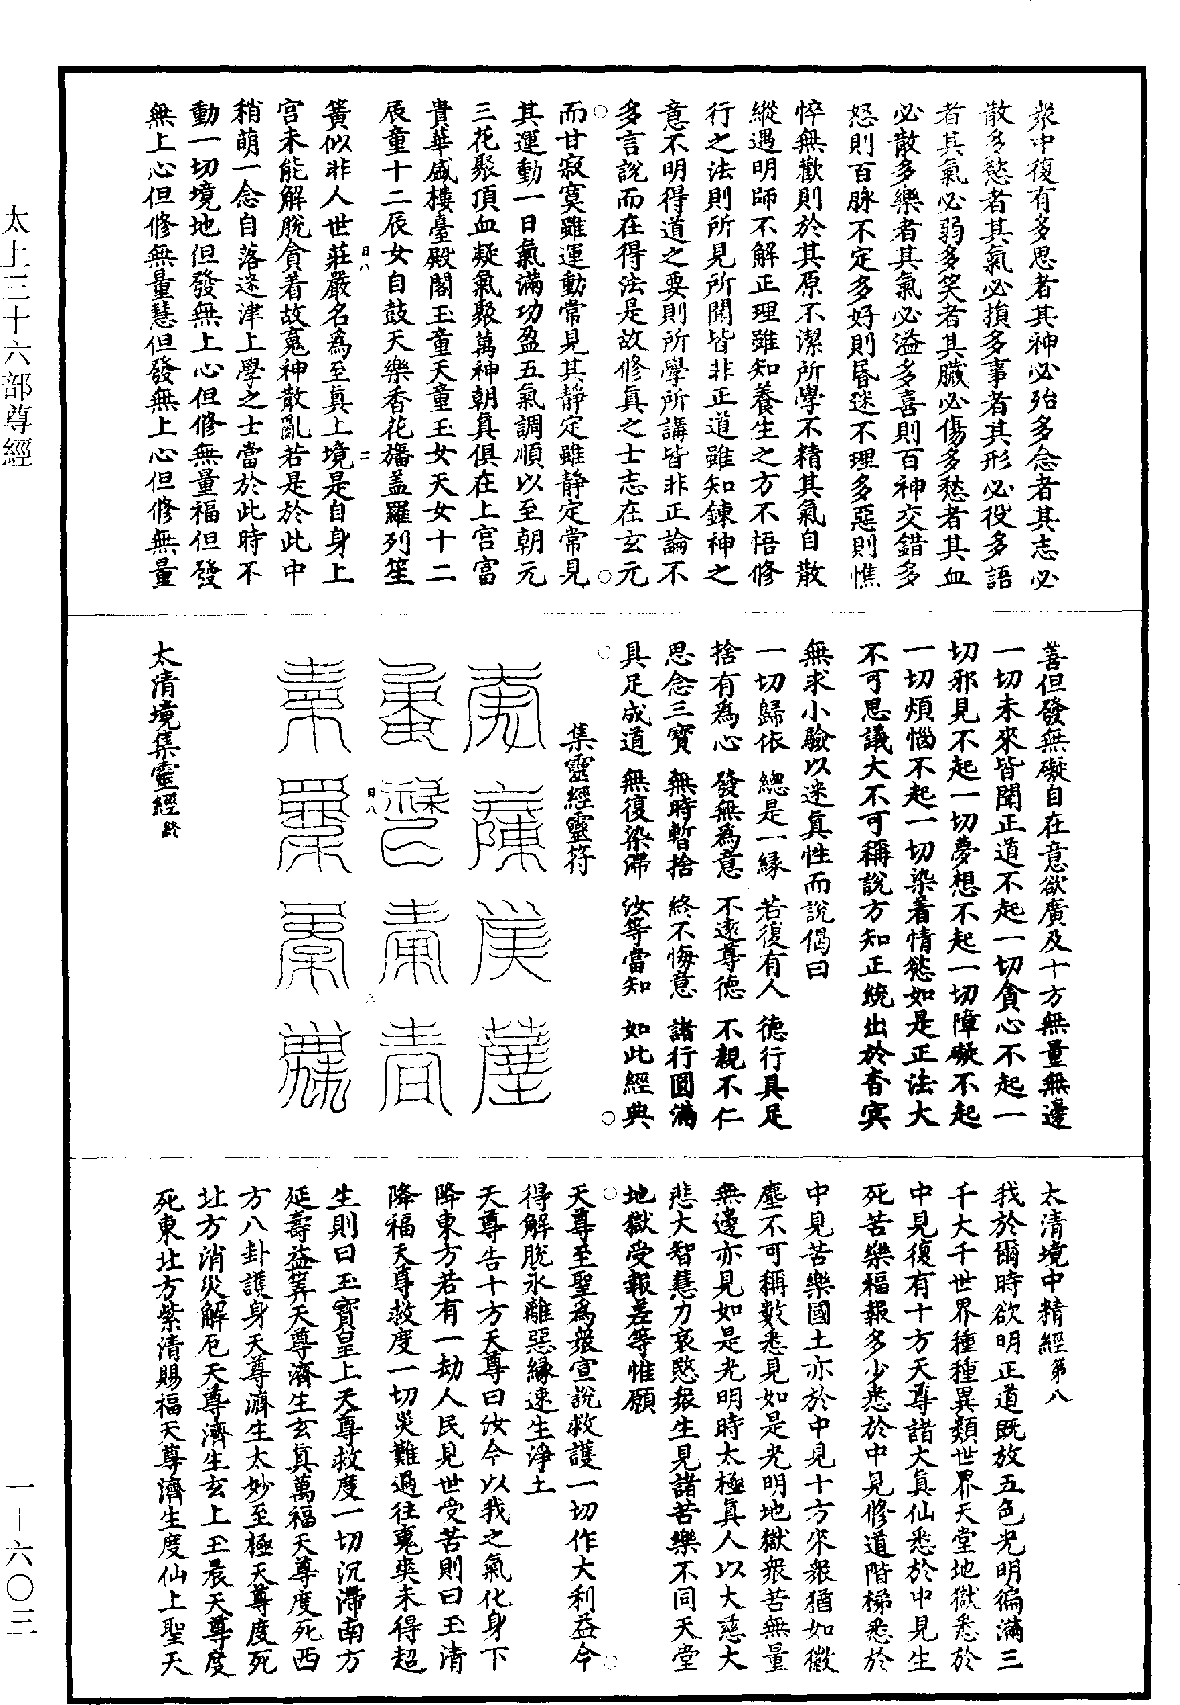 衆中復有多思者其神必殆多念者其志必
散多慾者其氣必損多事者其形必役多語
者其氣必弱多笑者其臟必傷多愁者其血
必散多樂者其氣必溢多喜則百神交錯多
怒則百脉不定多好則昏迷不理多惡則憔
悴無歡則於其原不潔所學不精其氣自散
縱遇明師不解正理雖知養生之方不悟修
行之法則所見所聞皆非正道雖知鍊神之
意不明得道之要則所學所講皆非正論不
多言說而在得法是故修真之士志在玄元
而甘寂寞雖運動常見其靜定雖静定常見
其運動一日氣滿功盈五氣調順以至朝元
三花聚頂血凝氣聚萬神朝真俱在上宮富
貴華盛樓臺殿閣玉童天童玉女天女十二
辰童十二辰女自鼓天樂香花旛盖羅列笙
簧似非人世莊嚴名為至真上境是自身上
宮未能解脫貪着故䰟神散亂若是於此中
稍萌一念自落迷津上學之士當於此時不
動一切境地但發無上心但修無量福但發
無上心但修無量慧但發無上心但修無量
善但發無礙自在意欲廣及十方無量無邊
一切未來皆聞正道不起一切貪心不起一
切邪見不起一切夢想不起一切障礙不起
一切煩惱不起一切染着情慾如是正法大
不可思議大不可稱說方知正統出於杳冥
無求小驗以迷真性而說偈曰
一切歸依 總是一緣 若復有人 德行具足
捨有為心 發無為意 不遠尊德 不親不仁
思念三寶 無時暫捨 終不悔意 諸行圓滿
具足成道 無復染滯 汝等當知 如此經典
集靈經靈符
太清境集靈經終
太清境中精經第八
我於爾時欲明正道既放五色光明徧滿三
千大千世界種種異類世界天堂地獄悉於
中見復有十方天尊諸大真仙悉於中見生
死苦樂福報多少悉於中見修道階梯悉於
中見苦樂國土亦於中見十方來衆猶如微
塵不可稱數悉見如是光明地獄衆苦無量
無邊亦見如是光明時太極真人以大慈大
悲大智慧力哀愍衆生見諸苦樂不同天堂
地獄受報差等惟願
天尊至聖為衆宣說救護一切作大利益令
得解脫永離惡緣速生淨土
天尊告十方天尊曰汝今以我之氣化身下
降東方若有一劫人民見世受苦則曰玉清
降福天尊救度一切災難過往䰟爽未得超
生則曰玉寶皇上天尊救度一切沉滯南方
延壽益筭天尊濟生玄真萬福天尊度死西
方八卦護身天尊濟生太妙至極天尊度死
北方消災解厄天尊濟生玄上玉宸天尊度
死東北方紫清賜福天尊濟生度仙上聖天
太上三十六部尊經
一－六〇三